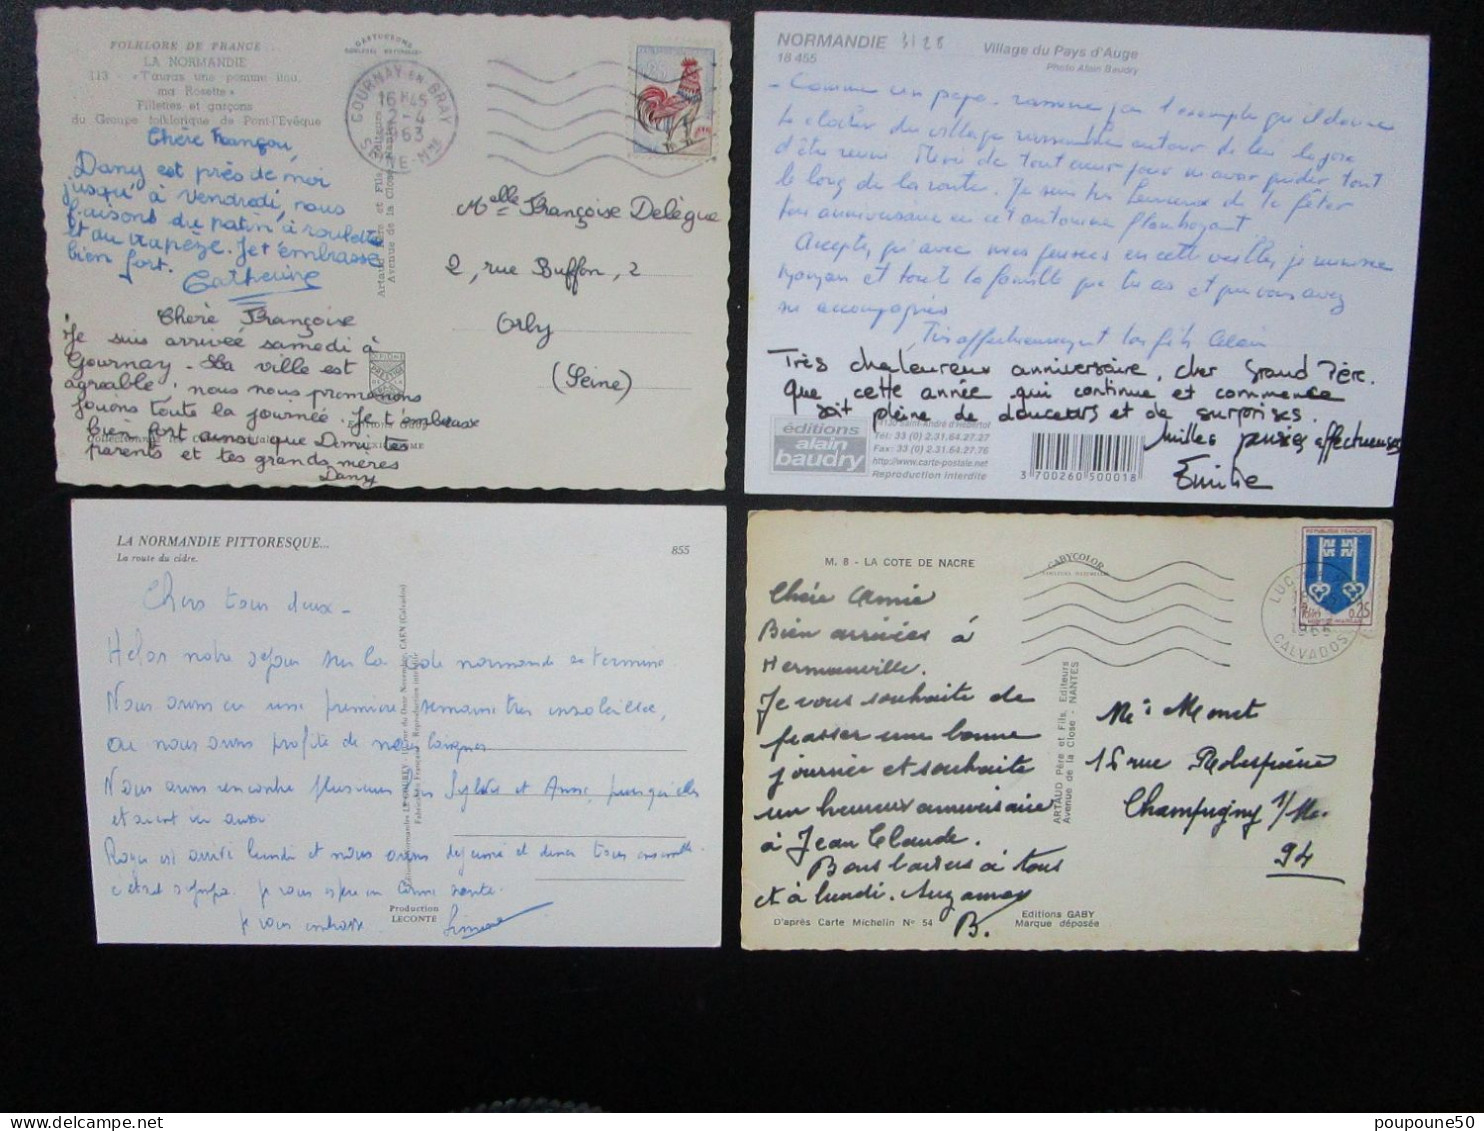 FOLKLORE DE FRANCE...
LA NORMANDIE
113 - « T'auras une pomme itou,
ma Rosette »
Fillettes et garçons
du Groupe folklorique de Pont-l'Evêque
Chère
Dany est près de moi
jusqu'à vendredi, nous
faisons du patin à roulette
et du trapèze. Je t'embrasse
bien fort.
Catherine
Chère Françoise
Je suis arrivée samedi à
Gournay - La ville est
agréable, nous nous promenons
jouons toute la journée. Je t'embrasse
bien fort ainsi que Dimi tes
parents et tes grands mères
Dany
GOURNAY EN BRAY
16 H 45
2-4
1963
SNE-Mme
Artaud Père et Fils, Editeurs
Avenue de la Close - Nantes
Melle Françoise Delègue
2, rue Buffon, 2
Orly
(Seine)
NORMANDIE 3128
18 455
Village du Pays d'Auge
Photo Alain Baudry
- Comme un papa
le clocher du village
d'être Merci de tout cœur pour tout
le long de la route. Je suis très heureux de te fêter
ton anniversaire en cet automne flamboyant
Accepte, qu'avec mes pensées en cette veille, je remercie
et toute la famille que tu as et que vous avez
accompagnés
Très affectueusement ton fils Alain
Très chaleureux anniversaire, cher Grand Père.
Que cette année qui continue et commence
soit pleine de douceurs et de surprises.
Milles pensées affectueuses
Emilie
éditions
alain
baudry
14130 Saint-André d'Hébertot
Tél: 33 (0) 2.31.64.27.27
Fax: 33 (0) 2.31.64.27.76
http://www.carte-postale.net
Reproduction interdite
3 700260 500018
LA NORMANDIE PITTORESQUE...
La route du cidre.
855
Chers tous deux -
Hélas notre séjour sur la côte normande se termine
Nous avons eu une première semaine très ensoleillée,
où nous avons profité de nos
Nous avons rencontré plusieurs fois Sylvie et Anne, puisqu'elles
étaient ici aussi
Roger est arrivé lundi et nous avons déjeuné et dîner tous ensemble
c'était sympa. Je vous espère en bonne santé.
Je vous embrasse
Simone
Production
LECONTE
M. 8 - LA COTE DE NACRE
GABYCOLOR
Chère Annie
Bien arrivées à
Hermanville.
Je vous souhaite de
passer une bonne
journée et souhaite
un heureux anniversaire
à Jean Claude.
Bons baisers à tous
et à lundi. Suzanne
B.
D'après Carte Michelin N° 54
Editions GABY
Marque déposée
ARTAUD Père et Fils, Editeurs
Avenue de la Close - NANTES
REPUBLIQUE FRANÇAISE
0,25
CALVADOS
Monet
15 rue Robespierre
Champigny s/Me.
94
poupoune50